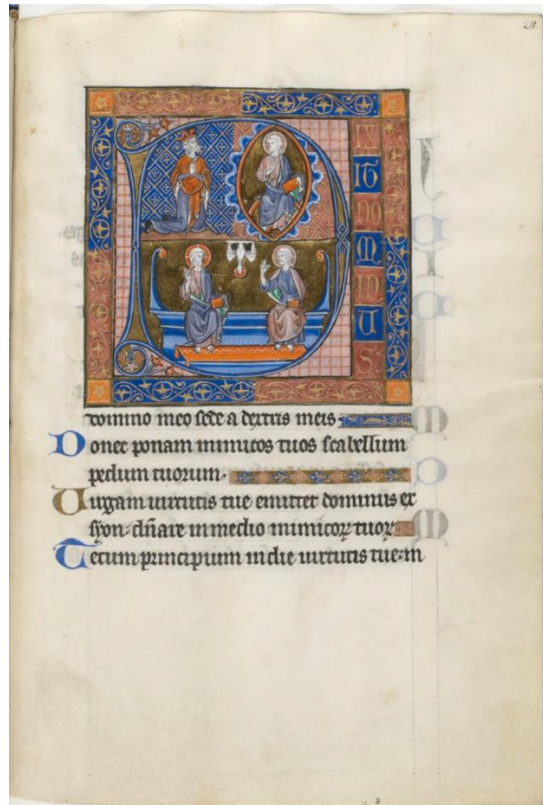 DIXIT DOMINUS
domino meo sede a dextris meis
Donec ponam inimicos tuos scabellum
pedum tuorum.
Uirgam uirtutis tue emittet dominus ex
syon: dn̄are in medio inimicoꝝ tuoꝝ
Tecum principium in die uirtutis tue: in